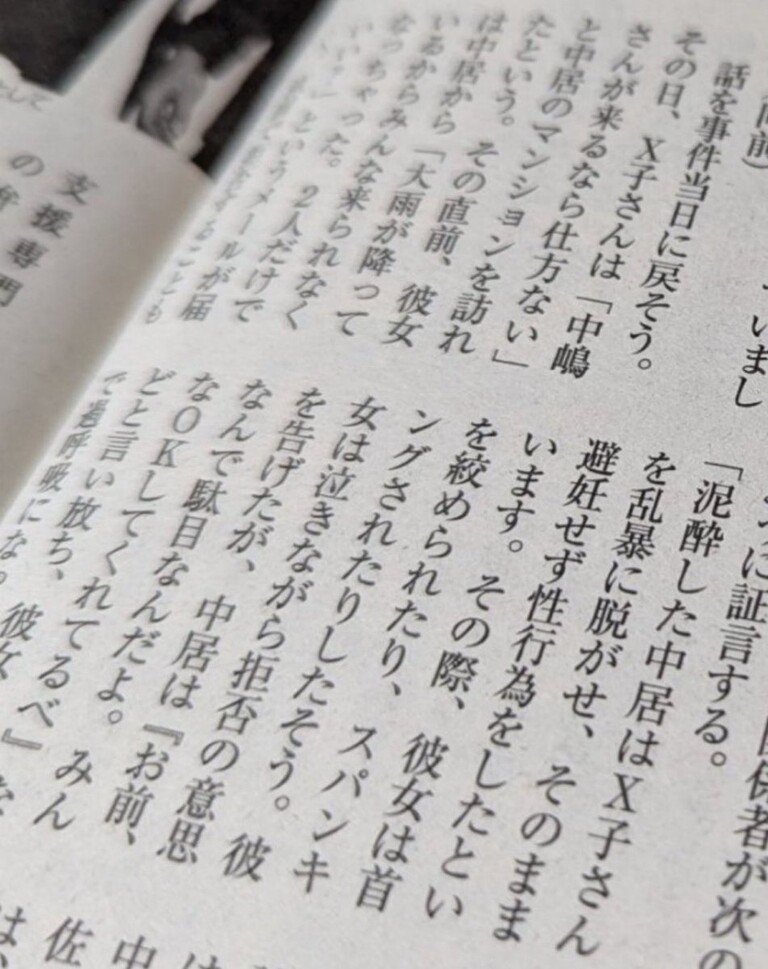 (同前)
いまし
話を事件当日に戻そう。
その日、X子さんは「中嶋
さんが来るなら仕方ない」
と中居のマンションを訪れ
たという。その直前、彼女
は中居から「大雨が降って
いるからみんな来られなく
なっちゃった。2人だけで
いい?」というメールが届
うに証言する。
係者が次の
「泥酔した中居はX子さん
を乱暴に脱がせ、そのまま
避妊せず性行為をしたとい
います。その際、彼女は首
を絞められたり、スパンキ
ングされたりしたそう。彼
女は泣きながら拒否の意思
を告げたが、中居は『お前、
なんで駄目なんだよ。みん
なOKしてくれてるべ』な
どと言い放ち、彼女
で過呼吸にな
支援専門
の
として
は
中
佐
は、